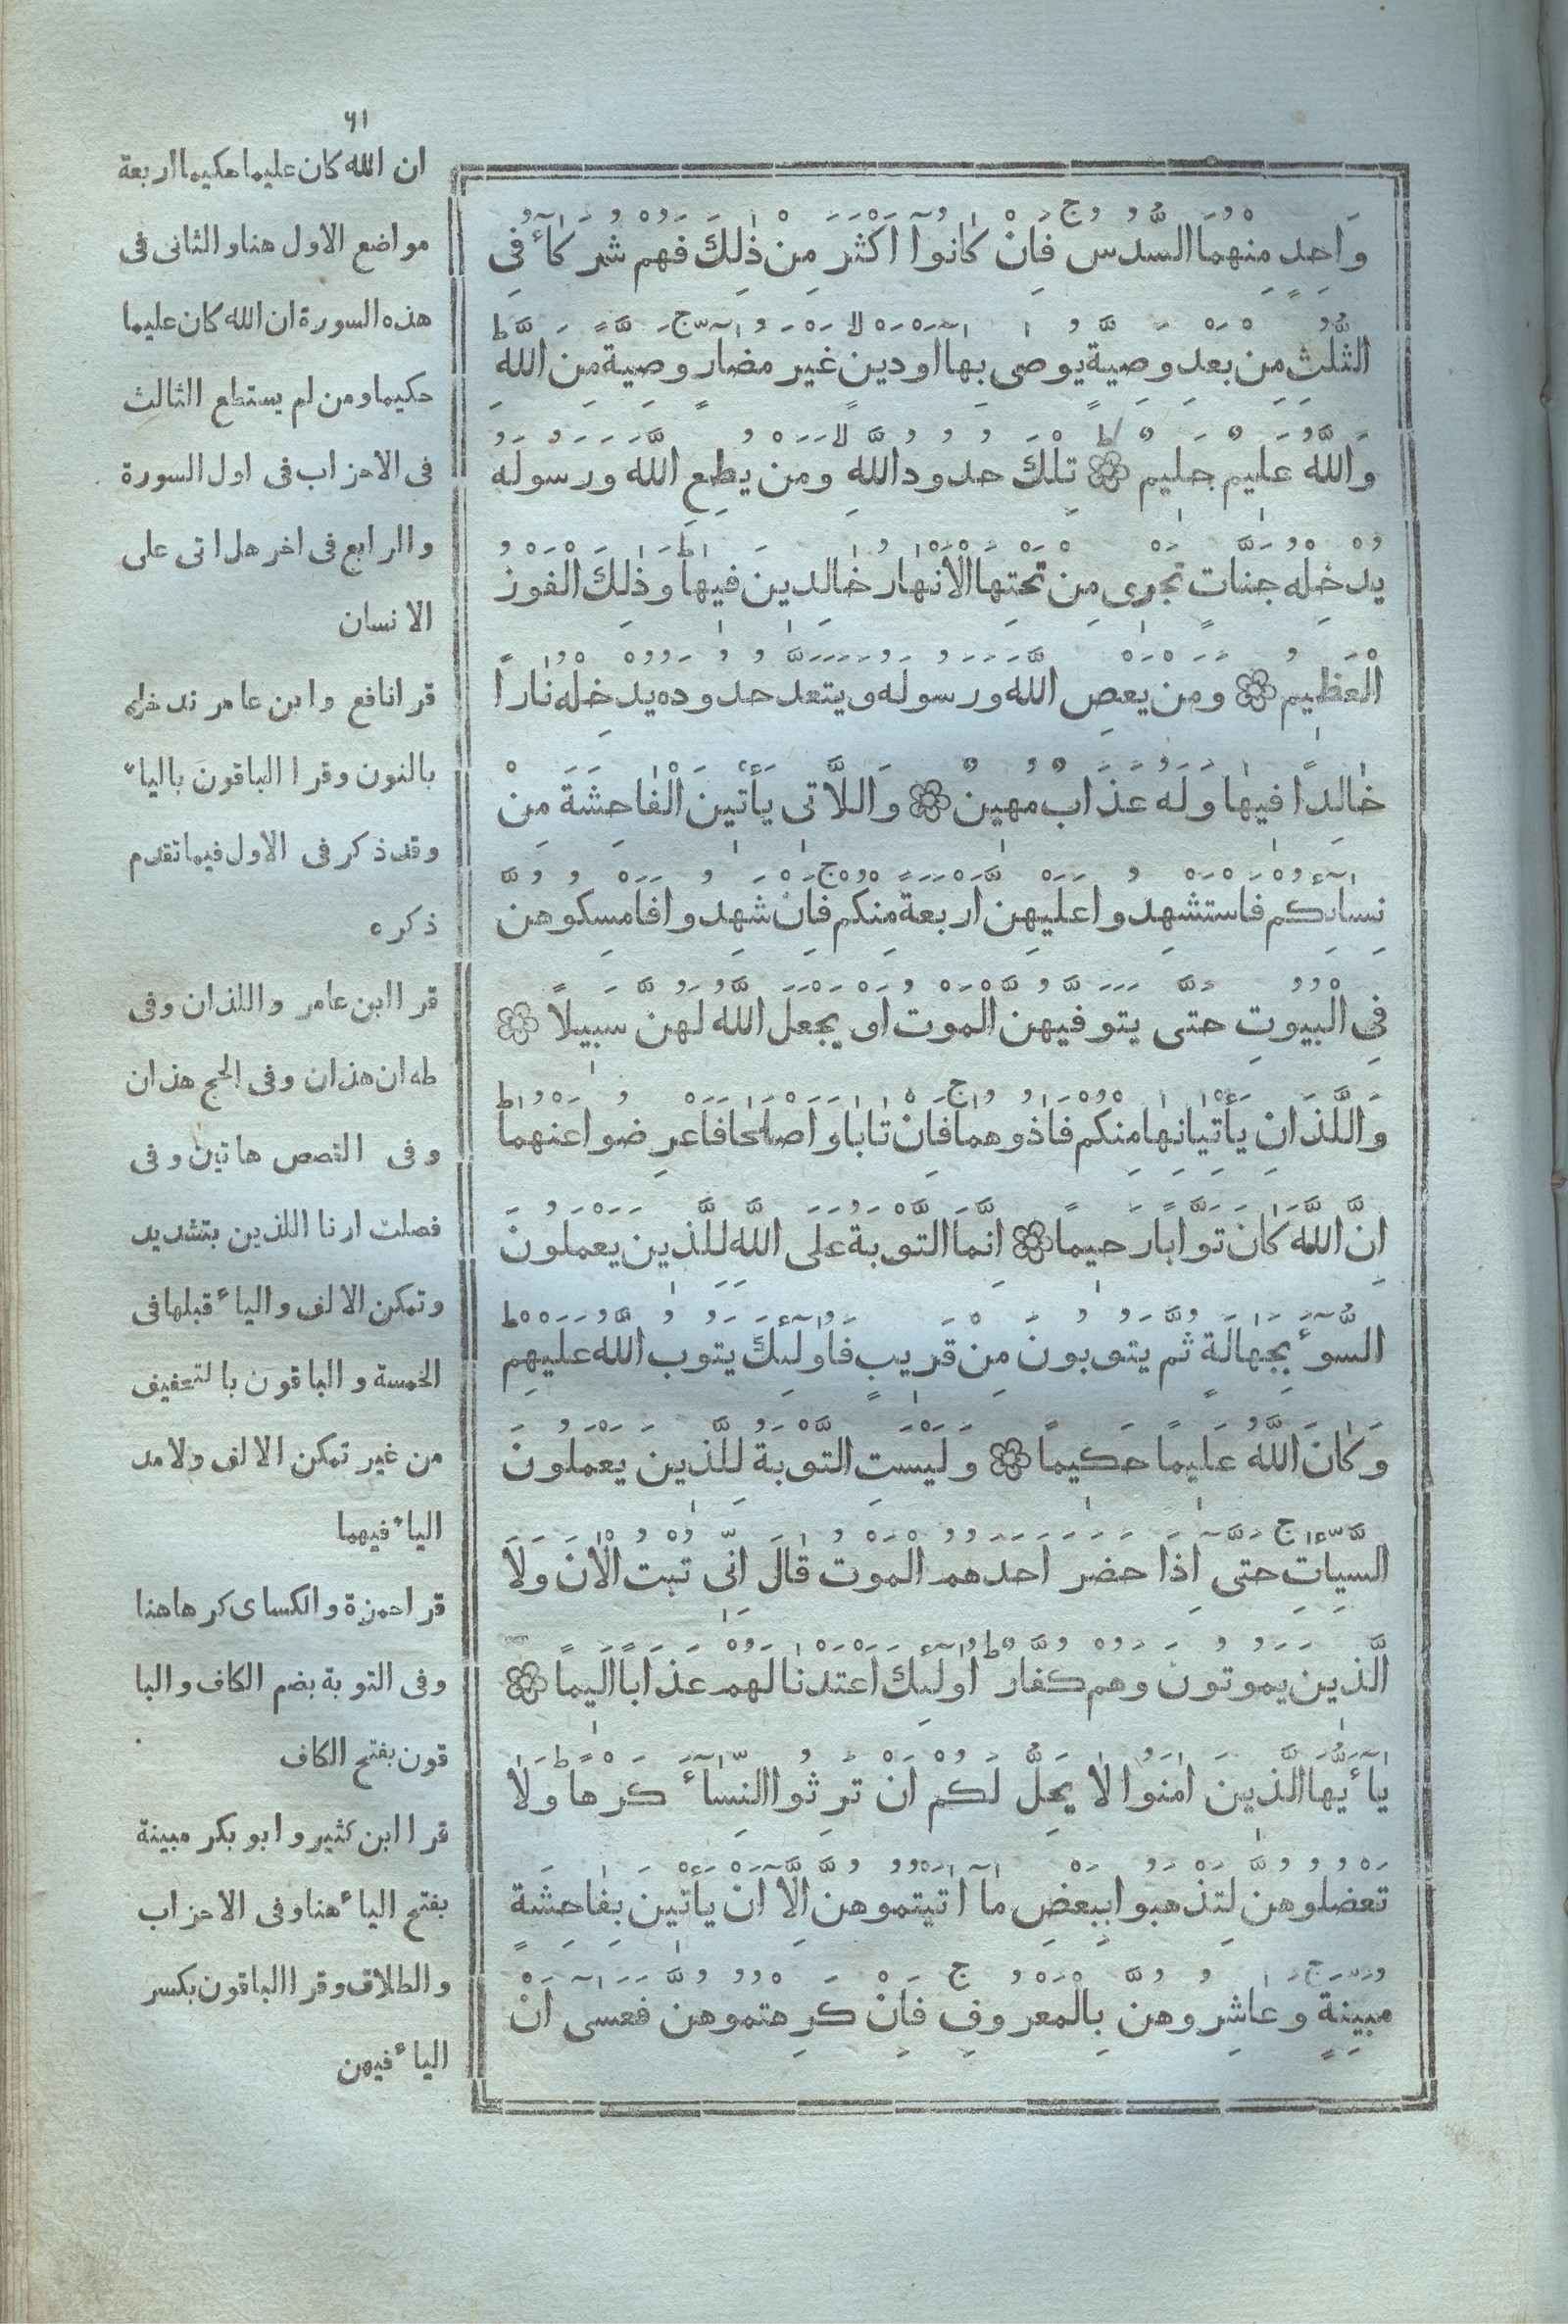 ٦١
وَاحِدٍ مِنْهُمَا السُّدُسُ ج فَاِنْ كَانُوٓا اَكْثَرَ مِنْ ذٰلِكَ فَهُمْ شُرَكَآءُ فِى
الثُّلُثِ مِنْ بَعْدِ وَصِيَّةٍ يُوصٰى بِهَآ اَوْ دَيْنٍ لا غَيْرَ مُضَآرٍّ ج وَصِيَّةً مِنَ اللّٰهِ ط
وَاللّٰهُ عَلِيمٌ حَلِيمٌ ط تِلْكَ حُدُودُ اللّٰهِ وَمَنْ يُطِعِ اللّٰهَ وَرَسُولَهُ
يُدْخِلْهُ جَنَّاتٍ تَجْرِى مِنْ تَحْتِهَا الْاَنْهَارُ خَالِدِينَ فِيهَا ط وَذٰلِكَ الْفَوْزُ
الْعَظِيمُ وَمَنْ يَعْصِ اللّٰهَ وَرَسُولَهُ وَيَتَعَدَّ حُدُودَهُ يُدْخِلْهُ نَارًا
خَالِدًا فِيهَا وَلَهُ عَذَابٌ مُهِينٌ وَاللَّاتِى يَأْتِينَ الْفَاحِشَةَ مِنْ
نِسَآئِكُمْ فَاسْتَشْهِدُوا عَلَيْهِنَّ اَرْبَعَةً مِنْكُمْ ج فَاِنْ شَهِدُوا فَاَمْسِكُوهُنَّ
فِى الْبُيُوتِ حَتَّى يَتَوَفَّيهُنَّ الْمَوْتُ اَوْ يَجْعَلَ اللّٰهُ لَهُنَّ سَبِيلًا
وَاللَّذَانِ يَأْتِيَانِهَا مِنْكُمْ فَاٰذُوهُمَا ج فَاِنْ تَابَا وَاَصْلَحَا فَاَعْرِضُوا عَنْهُمَا ط
اِنَّ اللّٰهَ كَانَ تَوَّابًا رَحِيمًا اِنَّمَا التَّوْبَةُ عَلَى اللّٰهِ لِلَّذِينَ يَعْمَلُونَ
السُّوٓءَ بِجَهَالَةٍ ثُمَّ يَتُوبُونَ مِنْ قَرِيبٍ فَاُولٰٓئِكَ يَتُوبُ اللّٰهُ عَلَيْهِمْ ط
وَكَانَ اللّٰهُ عَلِيمًا حَكِيمًا وَلَيْسَتِ التَّوْبَةُ لِلَّذِينَ يَعْمَلُونَ
السَّيِّاٰتِ ج حَتَّىٓ اِذَا حَضَرَ اَحَدَهُمُ الْمَوْتُ قَالَ اِنِّى تُبْتُ الْاٰنَ وَلَا
الَّذِينَ يَمُوتُونَ وَهُمْ كُفَّارٌ ط اُولٰٓئِكَ اَعْتَدْنَا لَهُمْ عَذَابًا اَلِيمًا
يَآءَيُّهَا الَّذِينَ اٰمَنُوا لَا يَحِلُّ لَكُمْ اَنْ تَرِثُوا النِّسَآءَ كَرْهًا ط وَلَا
تَعْضُلُوهُنَّ لِتَذْهَبُوا بِبَعْضِ مَآ اٰتَيْتُمُوهُنَّ اِلَّآ اَنْ يَأْتِينَ بِفَاحِشَةٍ
مُبَيِّنَةٍ ج وَعَاشِرُوهُنَّ بِالْمَعْرُوفِ ج فَاِنْ كَرِهْتُمُوهُنَّ فَعَسَىٓ اَنْ
ان الله كان عليما حكيما اربعة
مواضع الاول هنا والثانى فى
هذه السورة ان الله كان عليما
حكيما ومن لم يستطع الثالث
فى الاحزاب فى اول السورة
والرابع فى اخر هل اتى على
الانسان
قرا نافع وابن عامر ندخله
بالنون وقرا الباقون بالياء
وقد ذكر فى الاول فيما تقدم
ذكره
قرا ابن عامر واللذان وفى
طه ان هذان وفى الحج هذان
وفى القصص هاتين وفى
فصلت ارنا اللذين بتشديد
وتمكن الالف والياء قبلها فى
الخمسة والباقون بالتخفيف
من غير تمكن الالف ولا مد
الياء فيهما
قرا حمزة والكساى كرها هنا
وفى التوبة بضم الكاف والبا
قون بفتح الكاف
قرا ابن كثير وابو بكر مبينة
بفتح الياء هنا وفى الاحزاب
والطلاق وقرا الباقون بكسر
الياء فيهن